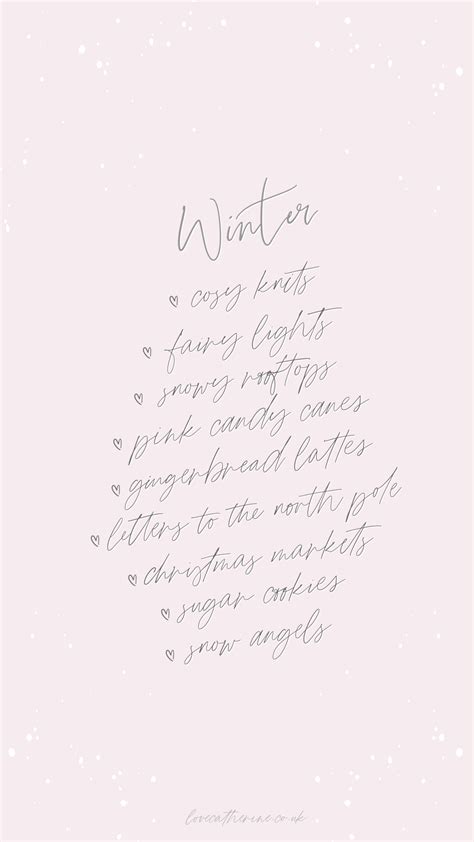 Winter
♡ cosy knits
♡ fairy lights
♡ snowy rooftops
♡ pink candy canes
♡ gingerbread lattes
♡ letters to the north pole
♡ christmas markets
♡ sugar cookies
♡ snow angels
lovecatherine.co.uk